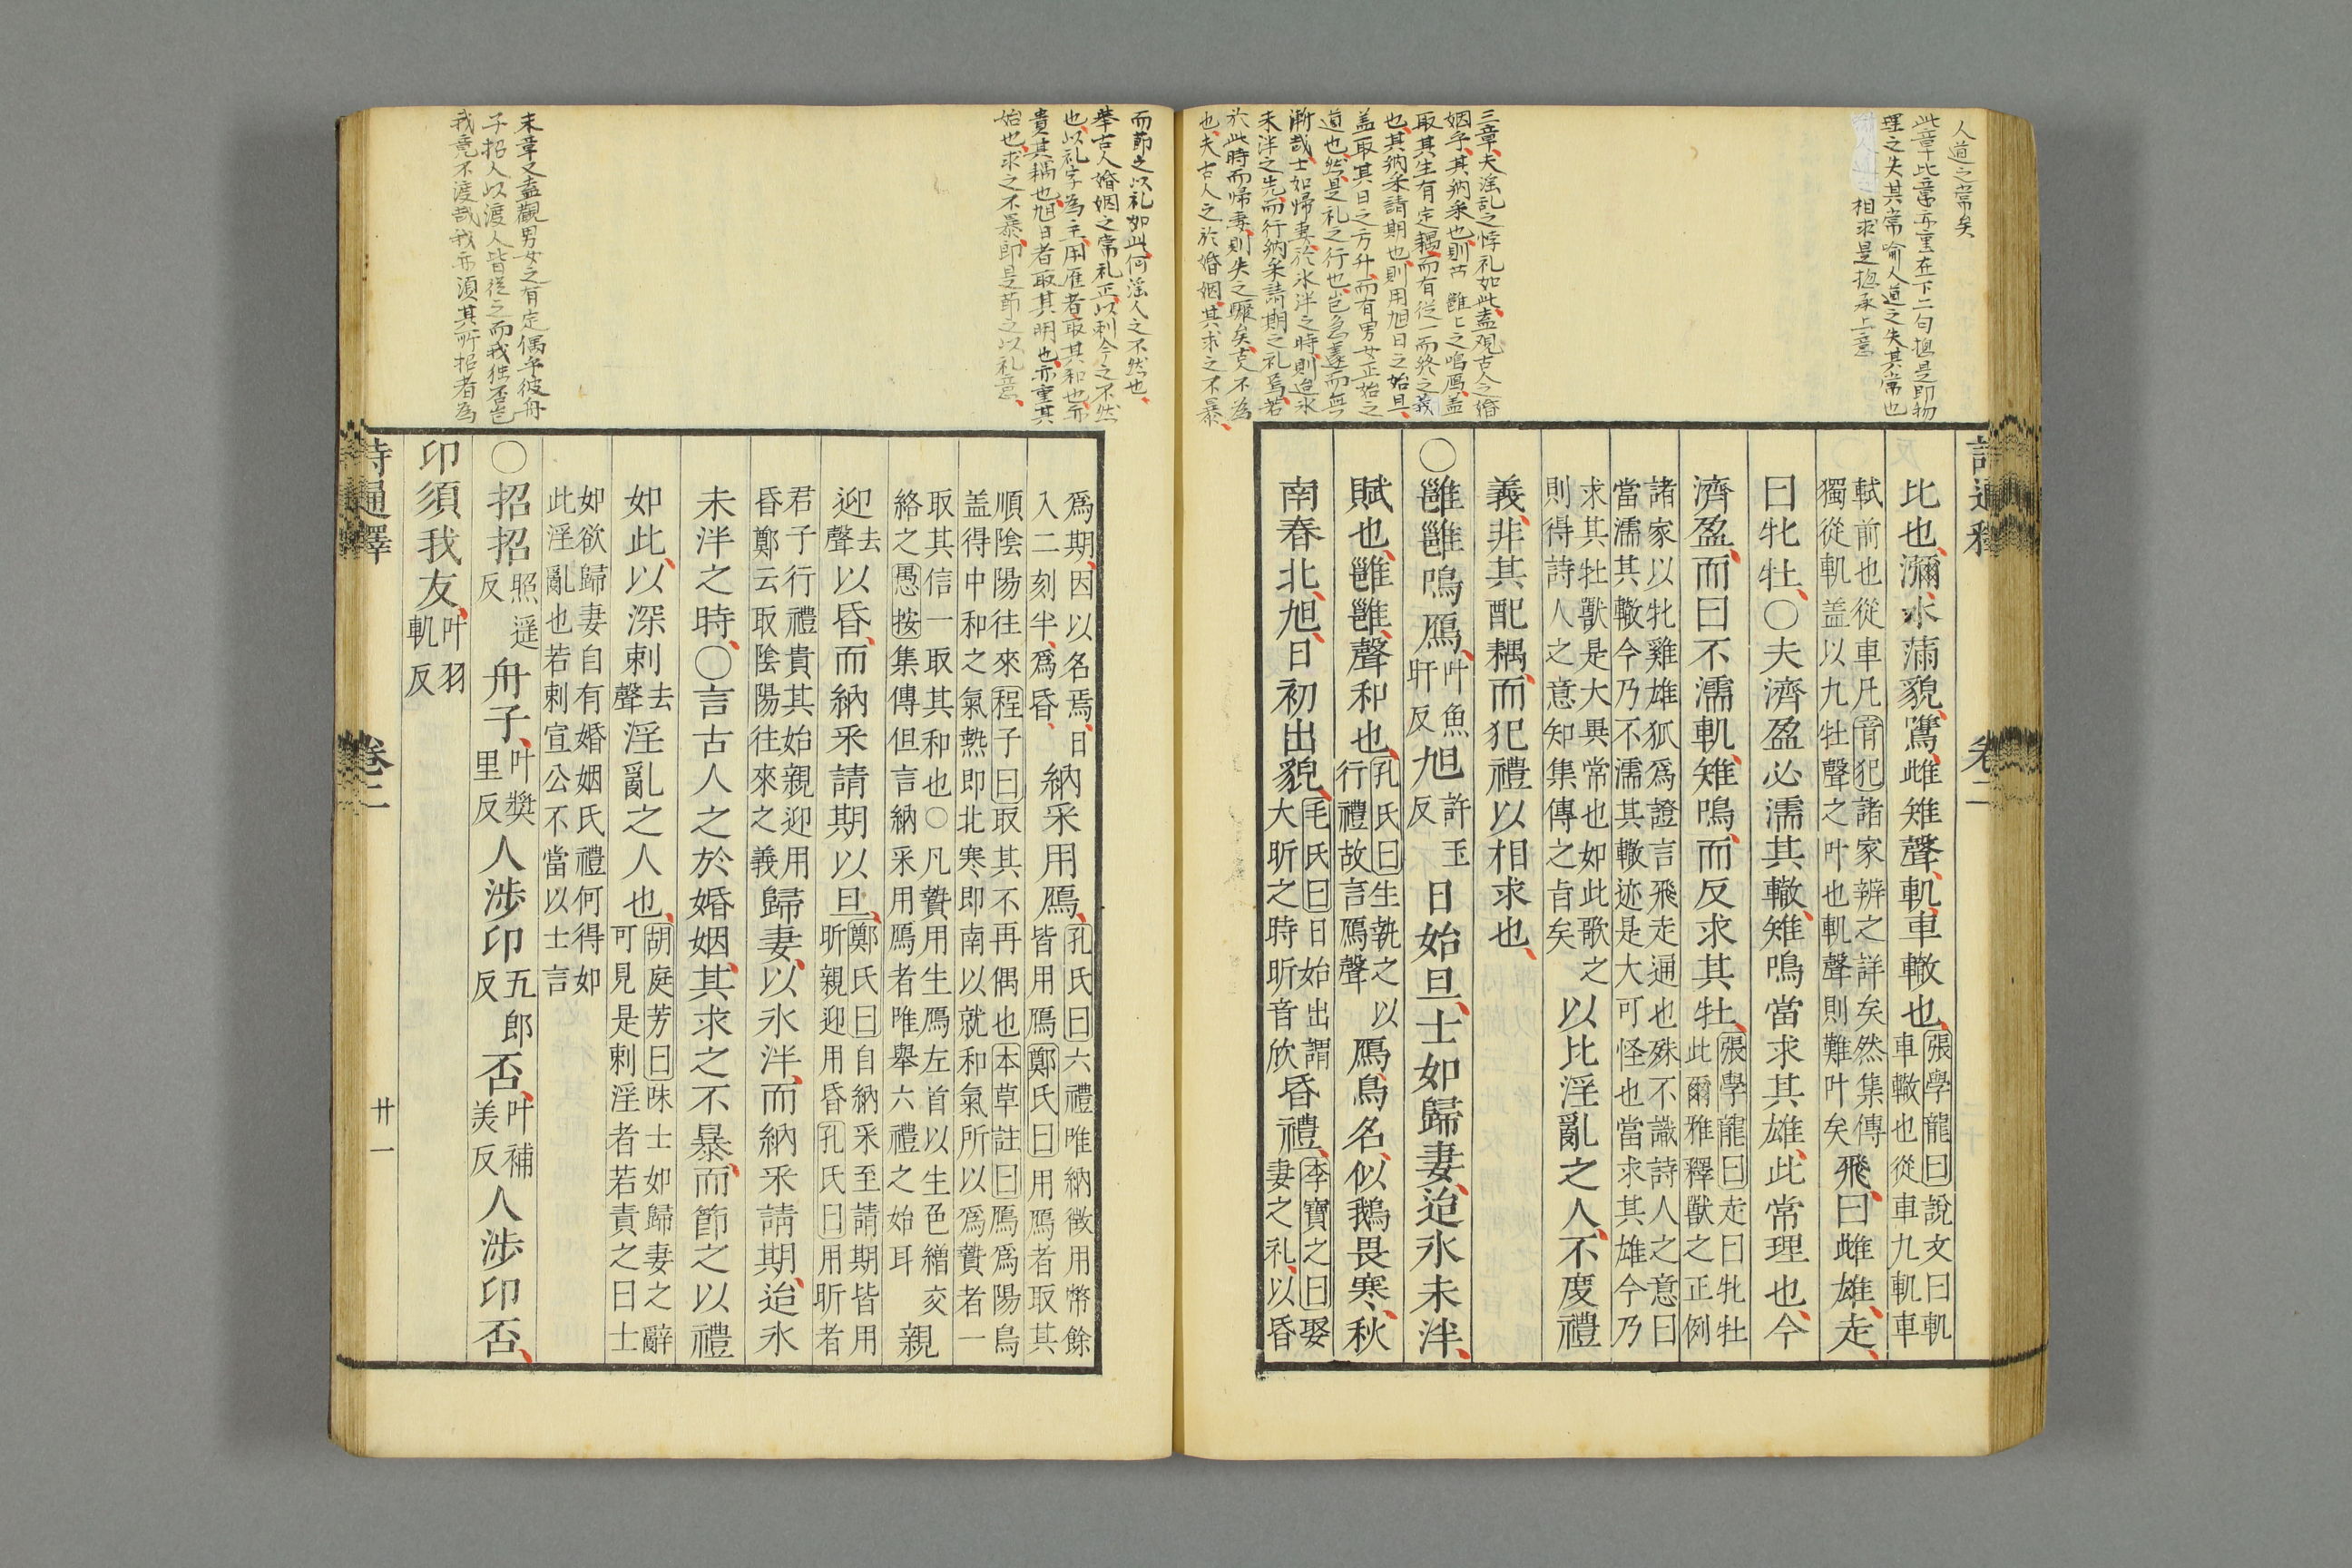 人道之常矣
此章比意亦重在下二句揔是即物
理之失其常喻人道之失其常也
相求是揔承上意
三章夫淫乱之悖礼如此盍观古人之婚
姻乎其納采也則以雝上之鳴鴈盖
取其生有定耦而有從一而終之義
也其納采請期也則用旭日之始旦
盖取其日之方升而有男女正始之
道也然是礼之行也豈急遽而無
漸哉士如帰妻於氷泮之時則迨氷
未泮之先而行納采請期之礼焉若
於此時而帰妻則失之驟矣古不為
也夫古人之於婚姻其求之不暴
比也瀰水滿貌鷕雌雉聲軌車轍也張學龍曰說文曰軌
車轍也從車九軌車
軾前也從車凡音犯諸家辨之詳矣然集傳
獨從軌盖以九牡聲之叶也軌聲則難叶矣飛曰雌雄走
曰牝牡○夫濟盈必濡其轍雉鳴當求其雄此常理也今
濟盈而曰不濡軌雉鳴而反求其牡張學龍曰走曰牝牡
此爾雅釋獸之正例
諸家以牝雞雄狐爲證言飛走通也殊不識詩人之意曰
當濡其轍今乃不濡其轍迹是大可怪也當求其雄今乃
求其牡獸是大異常也如此歌之
則得詩人之意知集傳之旨矣以比淫亂之人不度禮
義非其配耦而犯禮以相求也
○雝雝鳴鴈叶魚
旰反旭許玉
反日始旦士如歸妻迨氷未泮
賦也雝雝聲和也孔氏曰生執之以
行禮故言鴈聲鴈鳥名似鵝畏寒秋
南春北旭日初出貌毛氏曰日始出謂
大昕之時昕音欣昏禮李寶之曰娶
妻之礼以昏
而莭之以礼如此何淫人之不然也
舉古人婚姻之常礼正以刺今之不然
也以礼字為主用雁者取其和也亦
貴其耦也旭日者取其明也亦重其
始也求之不暴即是莭之以礼意
末章又盍觀男女之有定偶乎彼舟
子招人以渡人皆從之而我独否豈
我竟不渡哉我亦湏其所招者為
爲期因以名焉日
入二刻半爲昏納采用鴈孔氏曰六禮唯納徵用幣餘
皆用鴈鄭氏曰用鴈者取其
順陰陽往來程子曰取其不再偶也本草註曰鴈爲陽鳥
盖得中和之氣熱即北寒即南以就和氣所以爲贄者一
取其信一取其和也○凡贄用生鴈左首以生色繒交
絡之愚按集傳但言納采用鴈者唯舉六禮之始耳親
迎去
聲以昏而納采請期以旦鄭氏曰自納采至請期皆用
昕親迎用昏孔氏曰用昕者
君子行禮貴其始親迎用
昏鄭云取陰陽往來之義歸妻以氷泮而納采請期迨氷
未泮之時○言古人之於婚姻其求之不暴而節之以禮
如此以深刺去
聲淫亂之人也胡庭芳曰味士如歸妻之辭
可見是刺淫者若責之曰士
如欲歸妻自有婚姻氏禮何得如
此淫亂也若刺宣公不當以士言
○招招照遥
反舟子叶奬
里反人涉卬五郎
反否叶補
美反人涉卬否
卬須我友叶羽
軌反
詩通釋
卷二
卄一